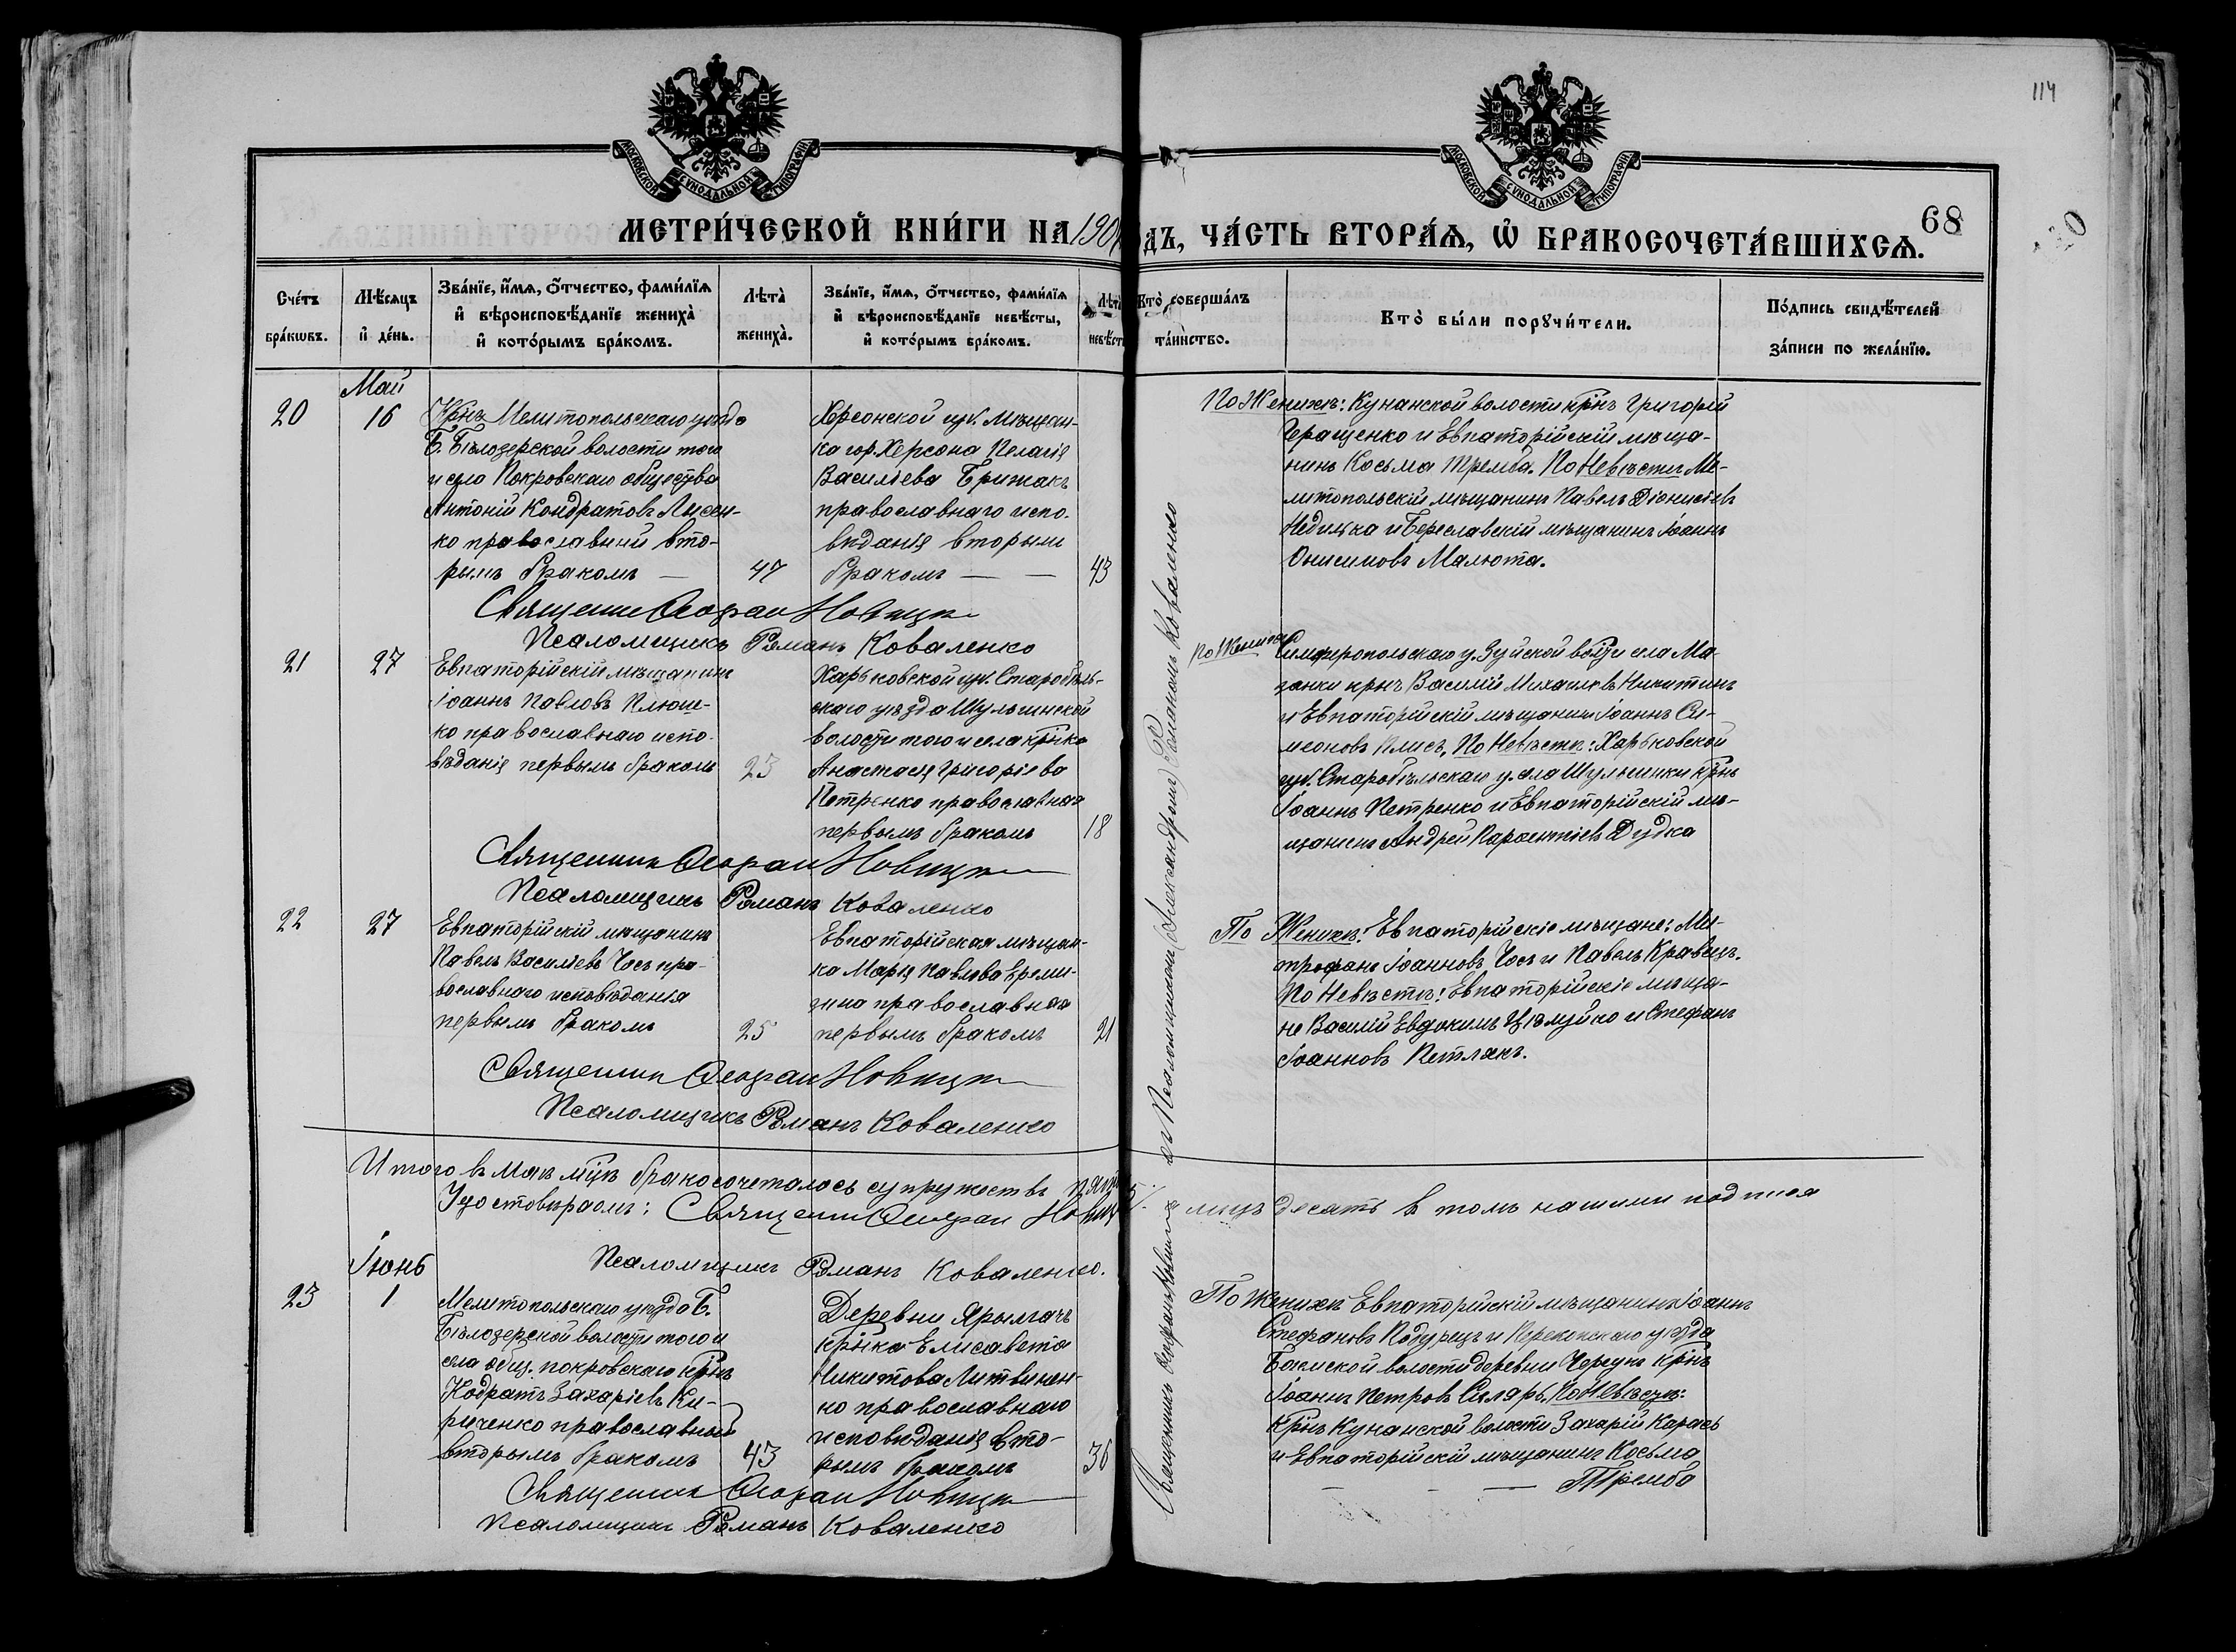 114
МОСКОВСКОЙ СѴНОДАЛЬНОЙ ТИПОГРАФІИ
МОСКОВСКОЙ СѴНОДАЛЬНОЙ ТИПОГРАФІИ
68
МЕТРИ́ЧЕСКОЙ КНИ́ГИ НА 190
ДЪ, ЧА́СТЬ ВТОРА́Ѧ, Ѡ҆ БРАКОСОЧЕТА́ВШИХСѦ.
Сче́тъ бра́кѡвъ.
Мѣ́сѧцъ и҆ де́нь.
Зва́нїе, и҆́мѧ, ѻ҆́тчество, фами́лїѧ и҆ вѣроисповѣ́данїе жениха̀ и҆ кото́рымъ бра́комъ.
Лѣта̀ жениха̀.
Зва́нїе, и҆́мѧ, ѻ҆́тчество, фами́лїѧ и҆ вѣроисповѣ́данїе невѣ́сты, и҆ кото́рымъ бра́комъ.
Лѣта̀ невѣ́ст
Кто̀ соверша́лъ та́инство.
Кто̀ бы́ли порꙋчи́тели.
По́дпись свидѣ́телей за́писи по жела́нїю.
Май
20
16
Крнъ Мелитопольскаго уѣзда
Б. Бѣлозерской волости того
и села Покровскаго общества
Антоній Кондратовъ Лисен-
ко православный вто-
рымъ бракомъ —
47
Херсонской губ. мѣщан-
ка гор. Херсона Пелагія
Васильева Бритакъ
православнаго испо-
вѣданія вторым
бракомъ — —
43
По Женихѣ: Кунанской волости крнъ Григорій
Геращенко и Евпаторійскій мѣща-
нинъ Косьма Тремба. По Невѣстѣ Ме-
литопольскій мѣщанинъ Павелъ Діонисіевъ
Недилка и Береславскій мѣщанинъ Іоаннъ
Онисимовъ Малюта.
Священник Ѳеофан Новицк
Псаломщикъ Романъ Коваленко
21
27
Евпаторійскій мѣщанинъ
Іоаннъ Павловъ Плюш-
ко православнаго испо-
вѣданія первымъ бракомъ
23
Харьковской губ. Старобѣль-
скаго уѣзда Шульгинской
волости того и села крнка
Анастасія Григоріева
Петренко православная
первымъ бракомъ
18
По Женихѣ
Симферопольскаго у. Зуйской волости села Ма-
занки крнъ Василій Михаиловъ Никитинъ
и Евпаторійскій мѣщанинъ Іоаннъ Си-
меоновъ Плисъ. По Невѣстѣ: Харьковской
губ. Старобѣльскаго у. села Шульгинки крнъ
Іоаннъ Петренко и Евпаторійскій мѣ-
щанинъ Андрей Парѳентіевъ Дудка
Священник Ѳеофан Новицк
Псаломщикъ Романъ Коваленко
22
27
Евпаторійскій мѣщанинъ
Павелъ Васильевъ Чосъ пра-
вославнаго исповѣданія
первымъ бракомъ
25
Евпаторійская мѣщан-
ка Марія Павлова Ереми-
зина православная
первымъ бракомъ
21
По Женихѣ: Евпаторійскіе мѣщане: Ми-
трофанъ Іоанновъ Чосъ и Павелъ Кравецъ.
По Невѣстѣ: Евпаторійскіе мѣща-
не Василій Евдокимъ и Стефанъ
Іоанновъ Петлякъ.
Священник Ѳеофан Новицк
Псаломщикъ Романъ Коваленко
Итого в Маѣ мцѣ бракосочеталось супружествъ пять 5/. лицъ десять в томъ нашими подписа
Удостовѣряемъ: Священник Ѳеофан Новиц
Псаломщикъ Романъ Коваленко.
Іюнь
23
1
Мелитопольскаго уѣзда Б.
Бѣлозерской волости того и
села общ. покровскаго крнъ
Кодратъ Захаріевъ Ки-
риченко православный
вторымъ бракомъ
43
Деревни Ярылгачъ
крнка Елисавета
Никитова Литвинен-
ко православнаго
исповѣданія вто-
рымъ бракомъ
36
По Женихѣ Евпаторійскій мѣщанинъ Іоаннъ
Стефановъ Подурецъ и Перекопскаго уѣзда
волости деревни крнъ
Іоаннъ Петровъ Силяръ. По Невѣстѣ:
крнъ Кунанской волости Захарій Карась
и Евпаторійскій мѣщанинъ Косьма
Тремба
Священник Ѳеофан Новицк
Псаломщикъ Романъ Коваленко
Священникъ Ѳеофанъ Новицкій съ Псаломщикомъ (Александромъ) Романомъ Коваленко